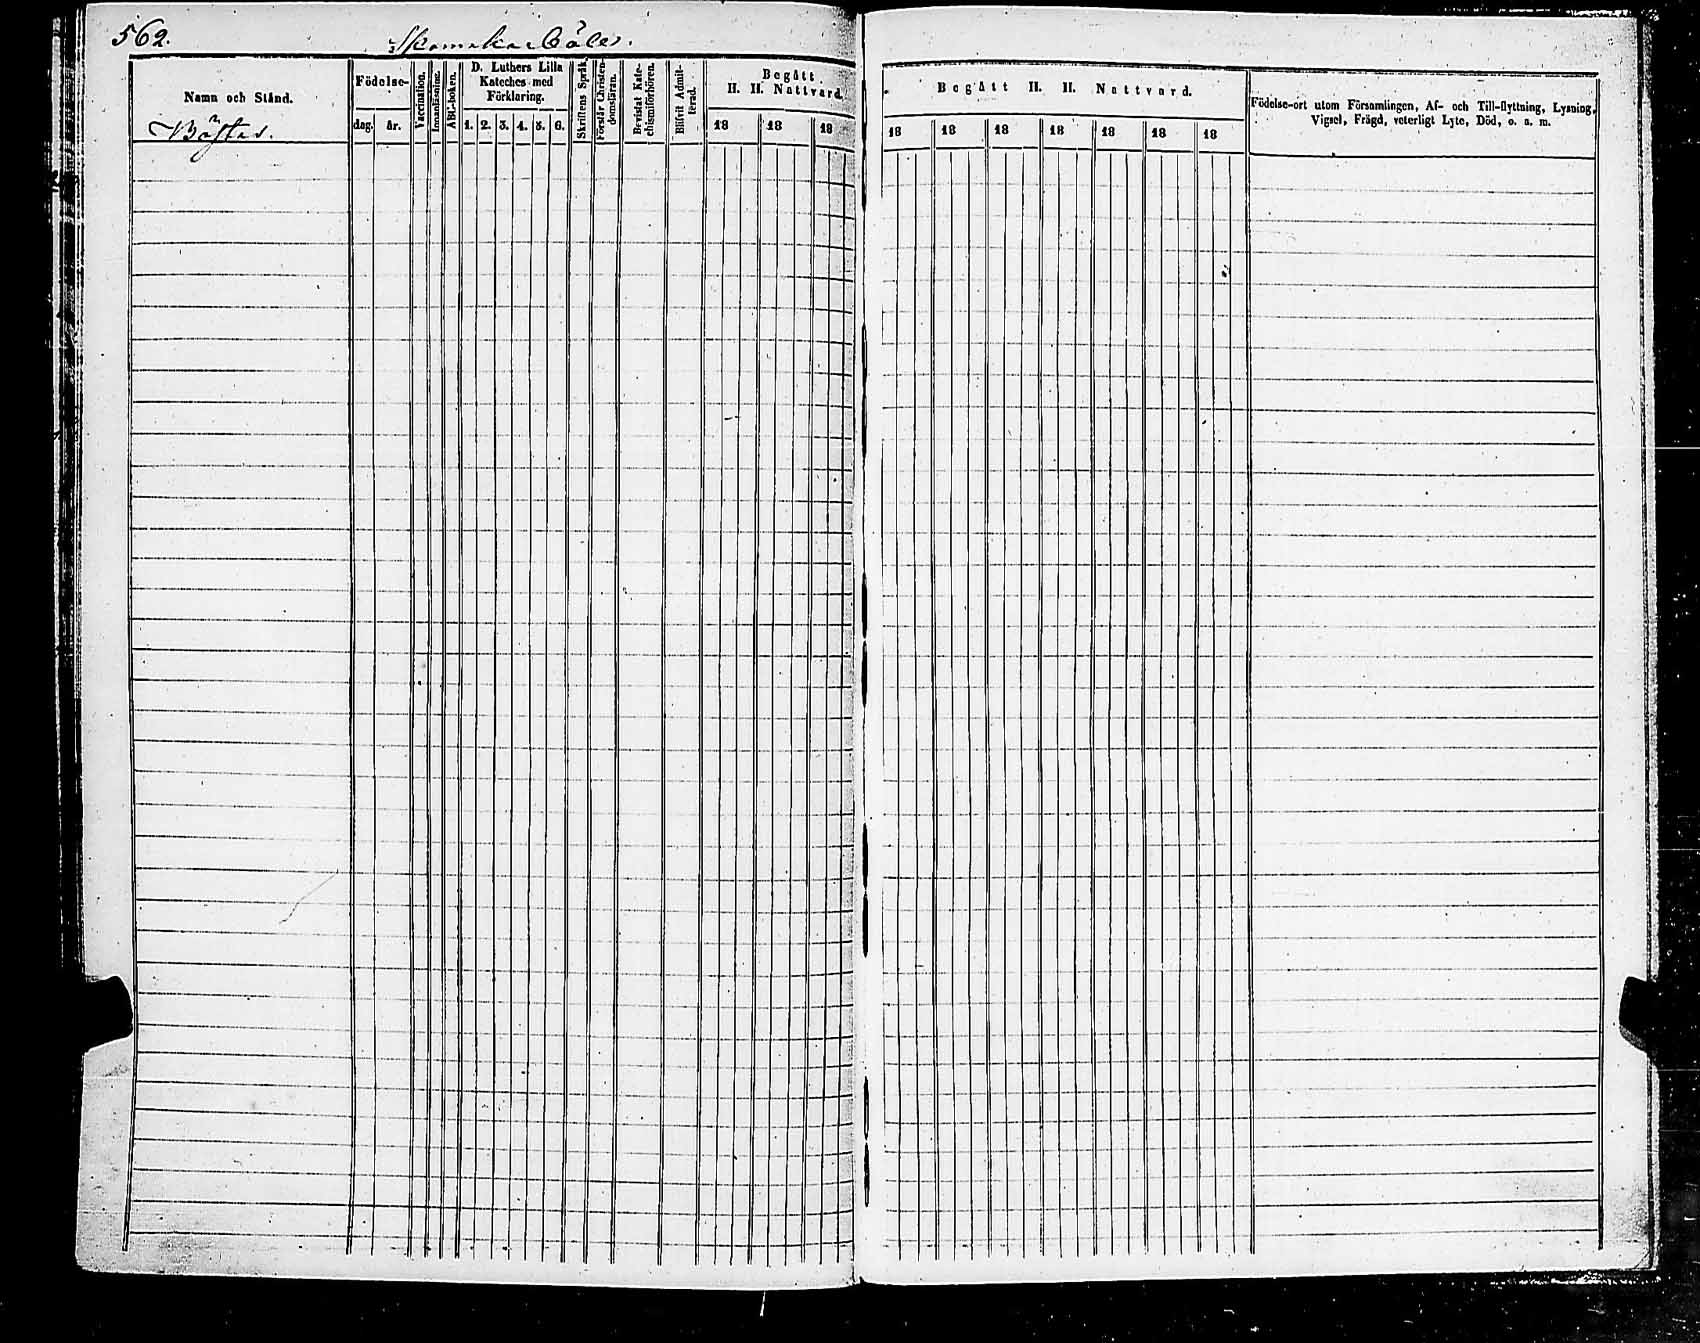 562.
Skomakarböle.
Namn och Stånd.
Födelse-
dag.
år.
Vaccination.
Innanläsning.
ABC-boken.
D. Luthers Lilla
Kateches med
Förklaring.
1. 2. 3. 4. 5. 6.
Skriftens Språk.
Förstår Christen-
domsläran.
Bevistat Kate-
chismiförhören.
Blifvit Admit-
terad.
Begått
H. H. Nattvard.
18 18 18
Begått H. H. Nattvard.
18 18 18 18 18 18 18
Födelse-ort utom Församlingen, Af- och Till-flyttning, Lysning,
Vigsel, Frägd, veterligt Lyte, Död, o. s. m.